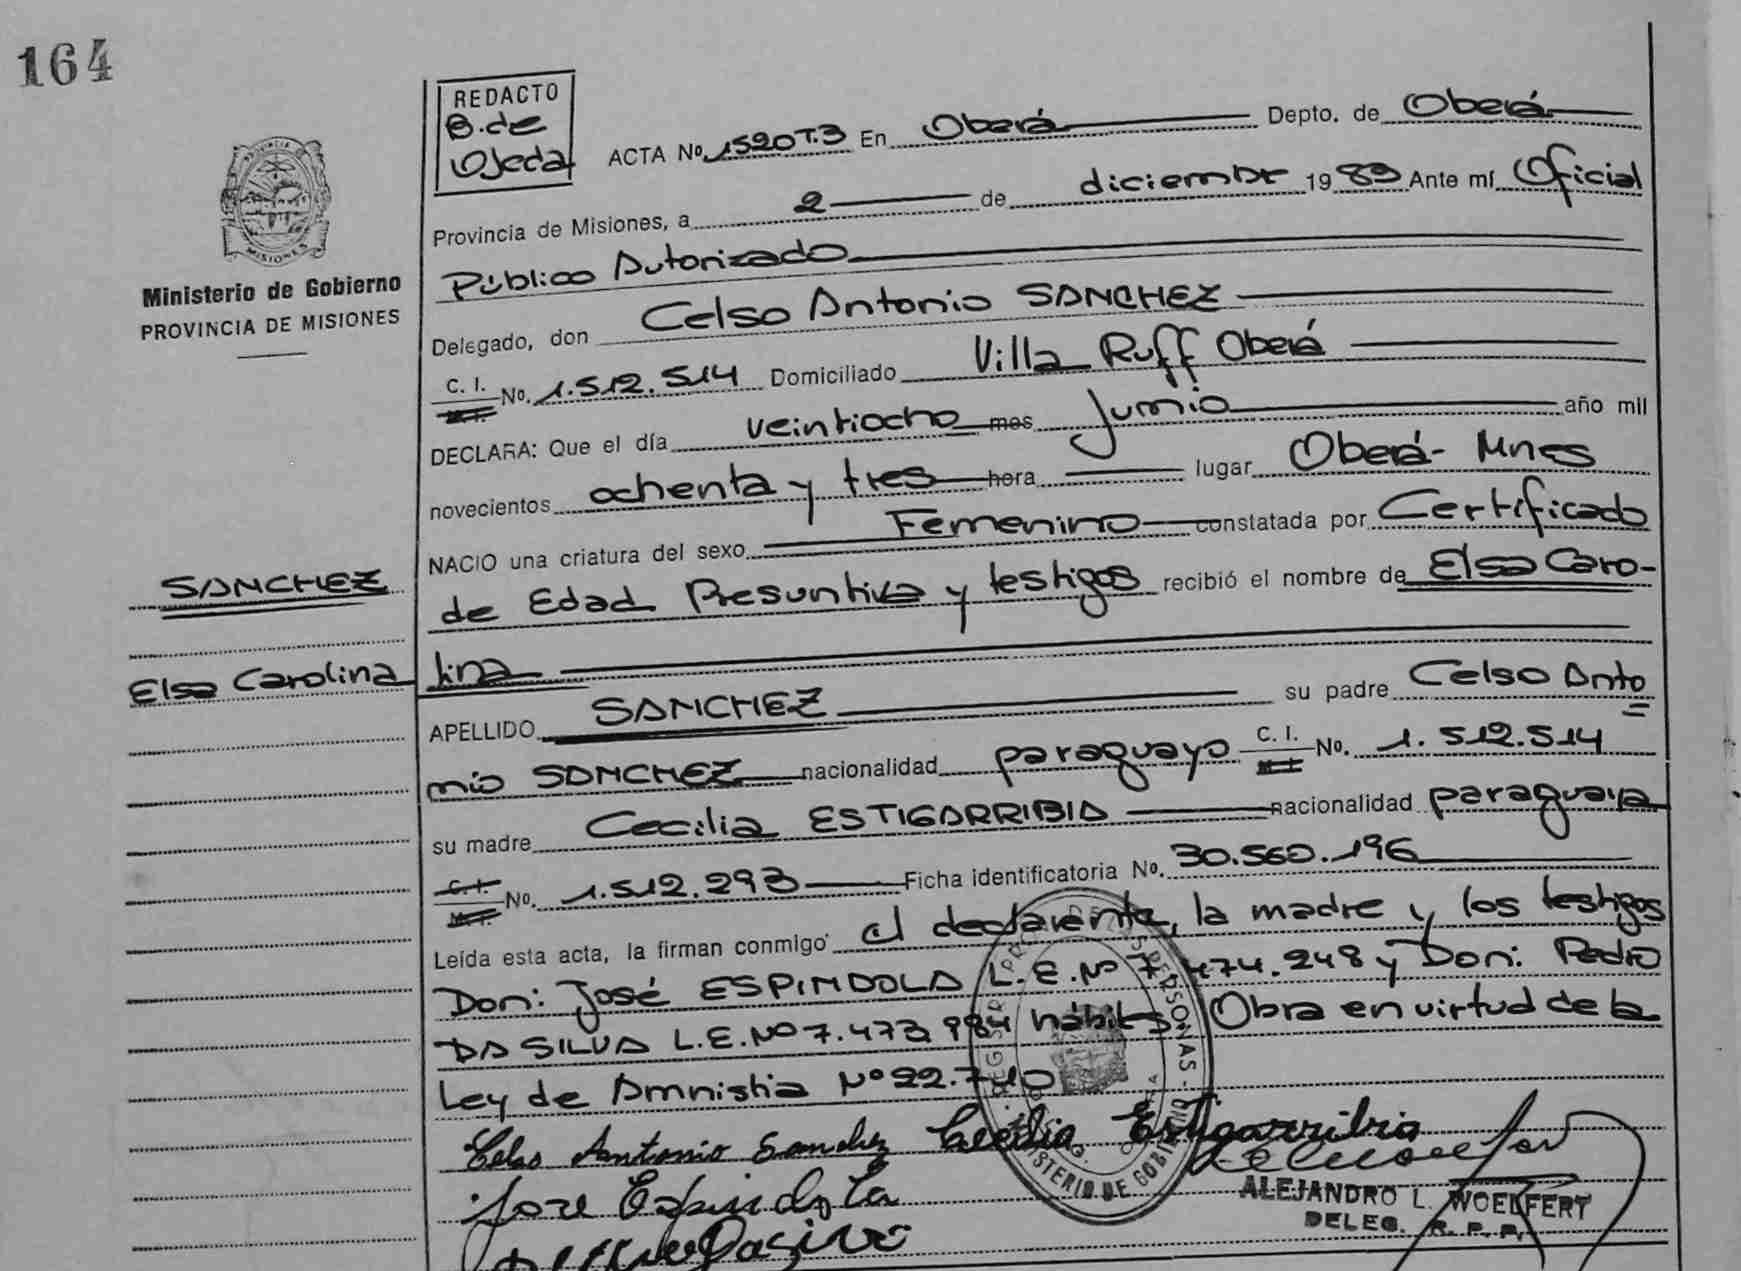 164
REDACTO
B. de
Ojeda
ACTA No. 1520 T.3 En Oberá Depto. de Oberá
Provincia de Misiones, a 2 de diciembre 1989 Ante mí Oficial
Público Autorizado
Delegado, don Celso Antonio SANCHEZ
C. I. No. 1.512.514 Domiciliado Villa Ruff Oberá
DECLARA: Que el día veintiocho mes Junio año mil
novecientos ochenta y tres hora lugar Oberá - Mnes
NACIO una criatura del sexo Femenino constatada por Certificado
de Edad Presuntiva y testigos recibió el nombre de Elsa Caro-
lina
APELLIDO SANCHEZ su padre Celso Anto
nio SANCHEZ nacionalidad paraguayo C. I. No. 1.512.514
su madre Cecilia ESTIGARRIBIA nacionalidad paraguaya
C. I. No. 1.512.293 Ficha identificatoria No. 30.560.196
Leída esta acta, la firman conmigo el declarante, la madre y los testigos
Don: José ESPINDOLA L.E. Nº 7.474.248 y Don: Pedro
DA SILVA L.E. Nº 7.473.984 hábiles. Obra en virtud de la
Ley de Amnistia Nº 22.710
Celso Antonio Sanchez Cecilia Estigarribia
Jose Espindola
ALEJANDRO L. WOELFERT
DELEG. R. P. P.
PROVINCIA DE MISIONES
Ministerio de Gobierno
PROVINCIA DE MISIONES
SANCHEZ
Elsa Carolina
PERSONAS
MINISTERIO DE GOBIERNO